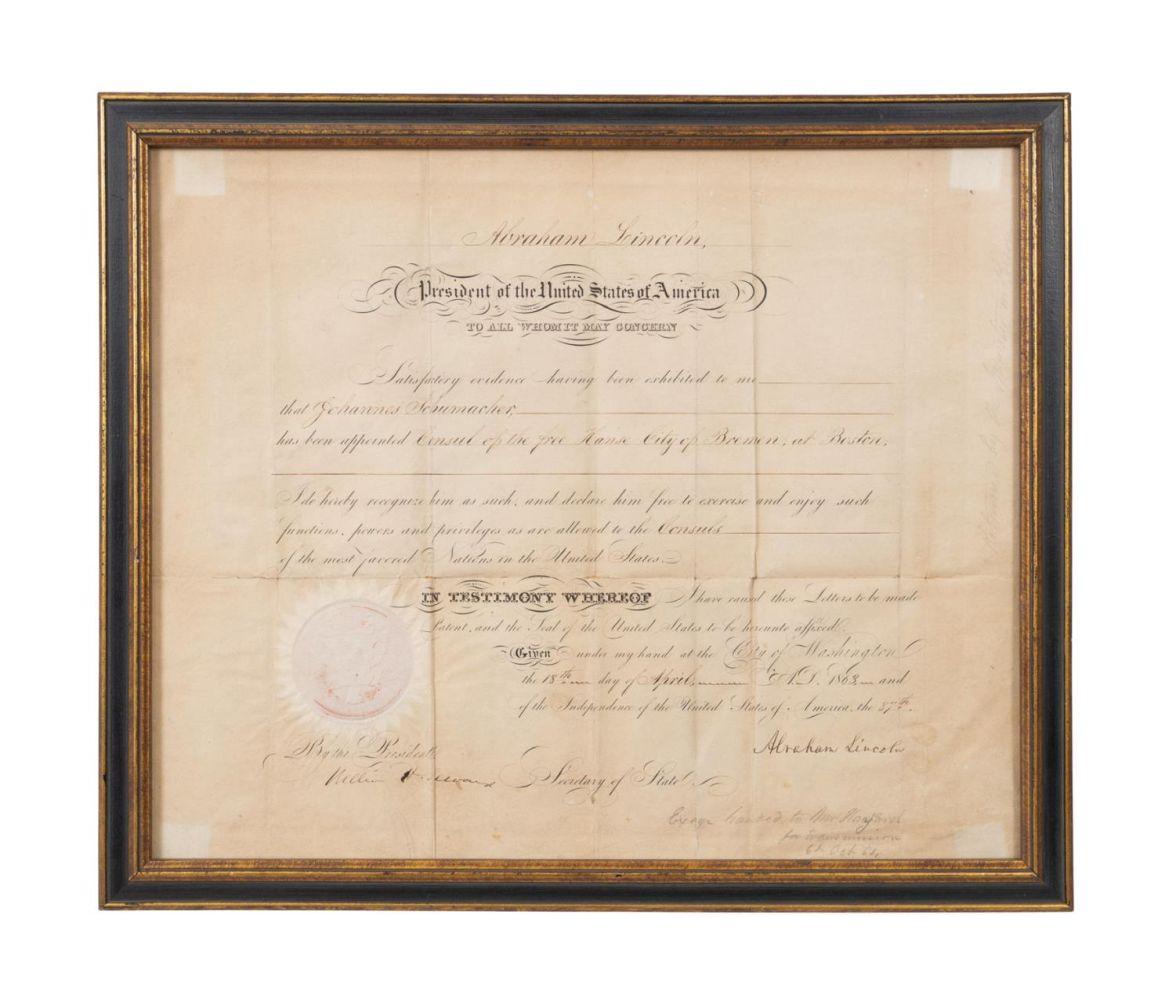 Abraham Lincoln,
President of the United States of America
TO ALL WHOM IT MAY CONCERN
Satisfactory evidence having been exhibited to me
that Johannes Schumacher,
has been appointed Consul of the free Hanse City of Bremen, at Boston,
I do hereby recognize him as such, and declare him free to exercise and enjoy such
functions, powers and privileges as are allowed to the Consuls
of the most favored Nations in the United States.
IN TESTIMONY WHEREOF I have caused these Letters to be made
Patent, and the Seal of the United States to be hereunto affixed.
Given under my hand at the City of Washington
the 18th day of April, A.D. 1863, and
of the Independence of the United States of America, the 87th.
Abraham Lincoln
By the President
William H Seward Secretary of State
handed to Mr
for transmission
6t Oct 64